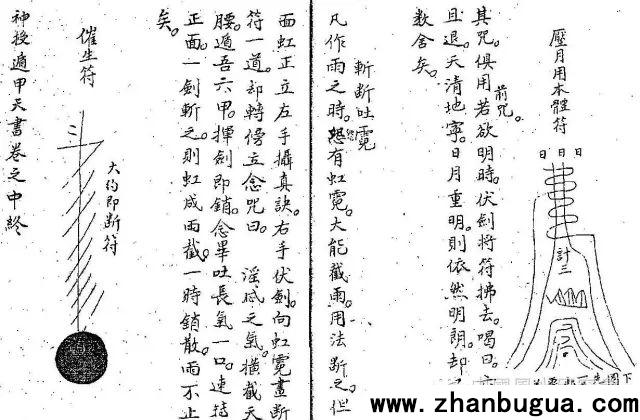 壓月用本體符
日日日
計三
其咒。俱用若欲明時。伏劍將符拂去。喝曰。
前咒。
且退。天清地寧。日月重明。則依然明朗。却
数舍矣。
斬断吐霓
凡作雨之時。恐有虹霓。大能截雨。用法断之。但
面虹正立左手攝真訣右手伏劍。向虹霓畫断
符一道。却轉傍立念咒曰。淫威之氣。橫截天
腰。遁吾六甲。揮劍即銷。念畢吐長氣一口。速轉
正面。一劍斬之。則虹成兩截。一時銷散。而不止
矣。
催生符
大約即断符
神授遁甲天書卷之中終
www.zhanbugua.com